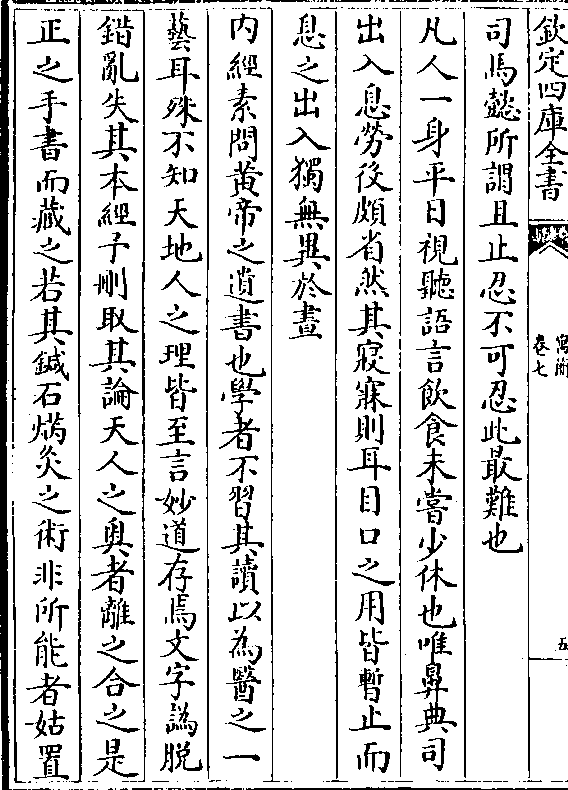 欽定四庫全書
卷七
五
司馬懿所謂且止忍不可忍此最難也
凡人一身平日視聽語言飲食未嘗少休也唯鼻典司
出入息勞後頗省然其寢寐則耳目口之用皆暫止而
息之出入獨無異於晝
内經素問黃帝之遺書也學者不習其讀以為醫之一
藝耳殊不知天地人之理皆至言妙道存焉文字譌脱
錯亂失其本經予刪取其論天人之奥者離之合之是
正之手書而藏之若其鍼石焫灸之術非所能者姑置